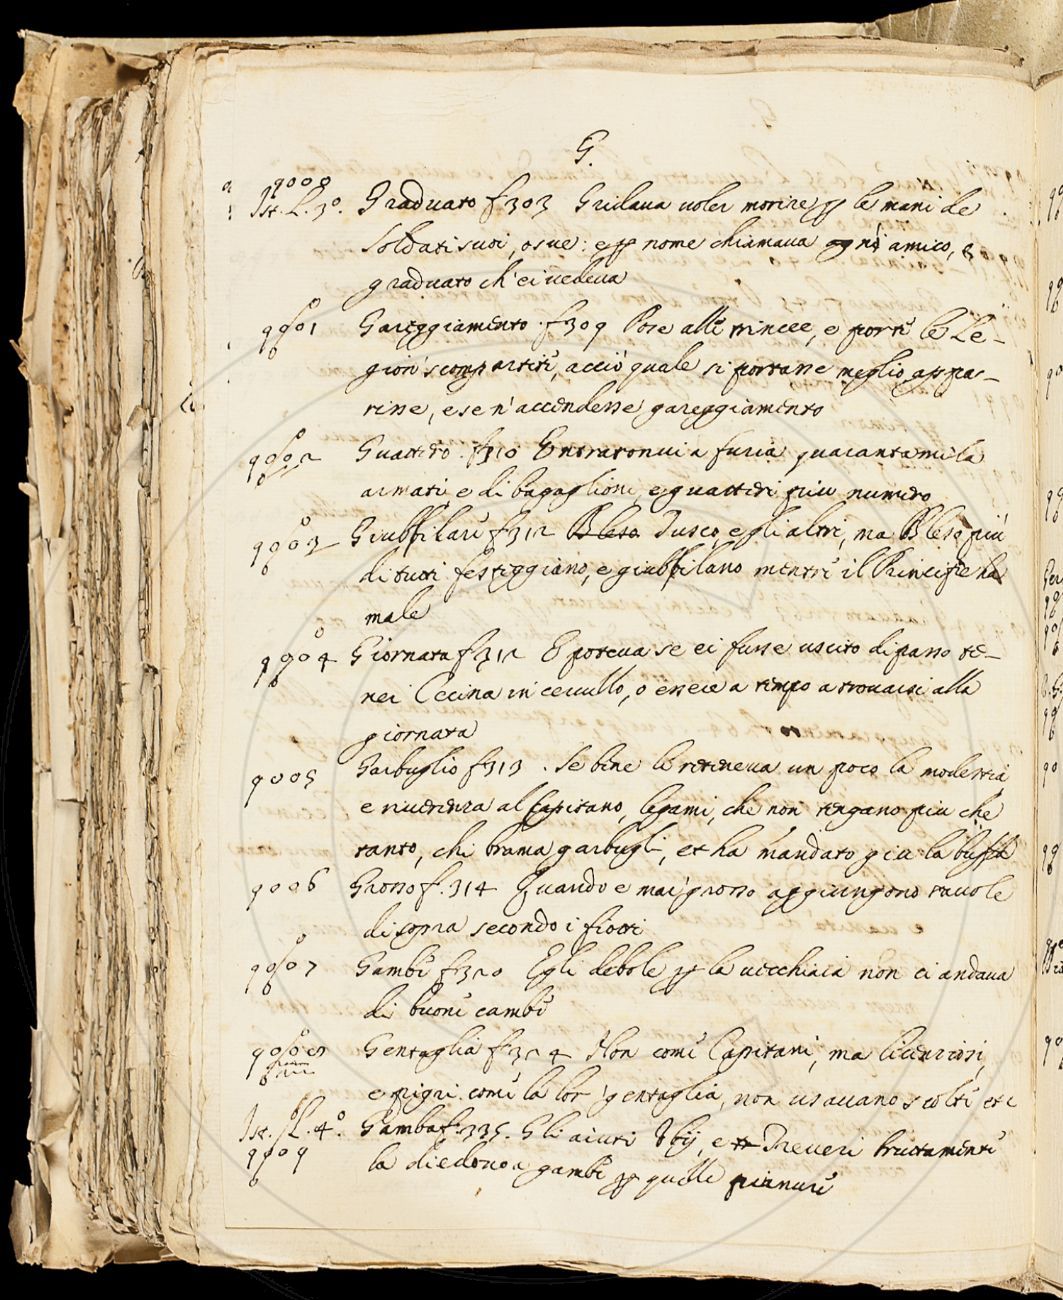 G.
9000
Ist. L. 3º. Graduato f 303 Gridava voler morire p le mani de
soldati suoi, osue: e p nome chiamava ogni amico, e
graduato ch'ei vedeva
9001 Gareggiamento. f 309 Pose alle trincee, e porti le Le-
gioni scompartite, acciò quale si portasse meglio appa-
risse, e se n'accendesse gareggiamento
9002 Guatteró. f 310 Entraronvi a furia quarantamila
armati e di bagaglioni, e guatteri più numero
9003 Giubbilare f 312 Bleso Tusco, e gli altri, ma Bleso più
di tutti festeggiano, e giubbilano mentre il Principe ha
male
9004 Giornata f 312 E poteva se ei fusse uscito di passo te-
ner Cecina in cervello, o essere a tempo a trovarsi alla
giornata
9005 Garbuglio f 313. Se bene le riteneva un poco la modestia
e riverenza al Capitano, legami, che non tengano più che
tanto, chi brama garbugli, et ha mandato giù la buffa
9006 Grosso f. 314 Quando e mar' grosso aggiungono tavole
di sopra secondo i fiotti
9007 Gambe f 320 Egli debole p la vecchiaia non ci andava
di buone gambe
9008 Gentaglia f 324 Non come Capitani, ma licenziosi,
e pigri come la lor gentaglia, non usavano scolte etc
Ist. L. 4º. Gamba f. 335. Gli aiuti Vbij, e Treveri bruttamente
9009 la diedono a gambe p quelle pianure